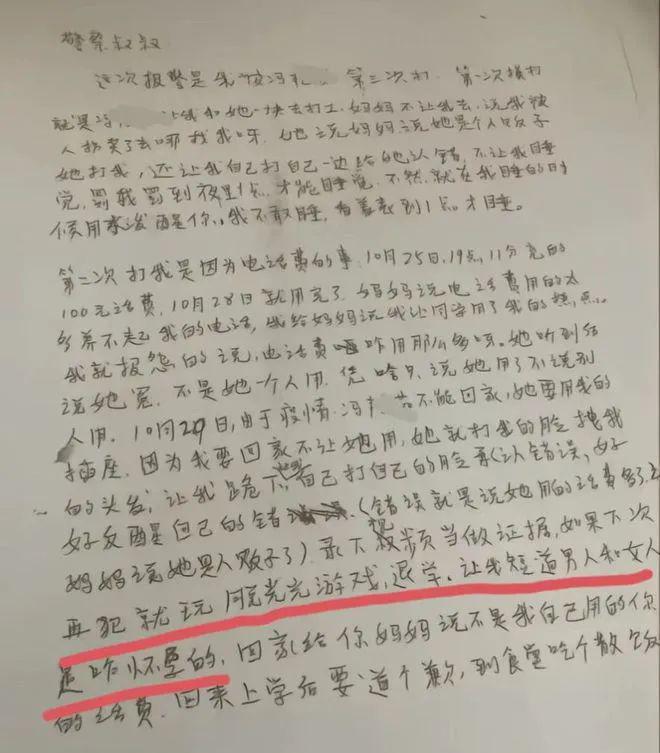 警察叔叔
这次报警是我被冯 第三次打. 第一次挨打
就是冯 让我和她一块去打工,妈妈不让我去,说我被
人拐卖了去哪找我呀。她说妈妈说她是个人贩子
她打我,还让我自己打自己一边给她认错,不让我睡
觉,罚我罚到夜里1点.才能睡觉.不然,就在我睡的时
候用水泼醒你。我不敢睡,看着表到1点才睡。
第二次打我是因为电话费的事,10月25日,19点,11分充的
100元话费,10月28日就用完了.妈妈说电话费用的太
多养不起我的电话,我给妈妈说我让同学用了我的
我就报怨的说,电话费咋用那么多呀。她听到后
说她冤,不是她一个人用,凭啥只说她用了不说别
人用。10月29日,由于疫情,冯 不能回家,她要用我的
插座.因为我要回家不让她用,她就打我的脸 我
的头发,让我跪下,自己打自己的脸承认错误,好
好反醒自己的错 (错误就是说她用的话费多了,
妈妈说她是人贩子了).录下视频当做证据,如果下次
再犯就玩脱光光游戏,退学。让我知道男人和女人
是咋怀孕的,回家给你妈妈说不是我自己用的你
的话费.回来上学后要道个歉,到食堂吃个散饭